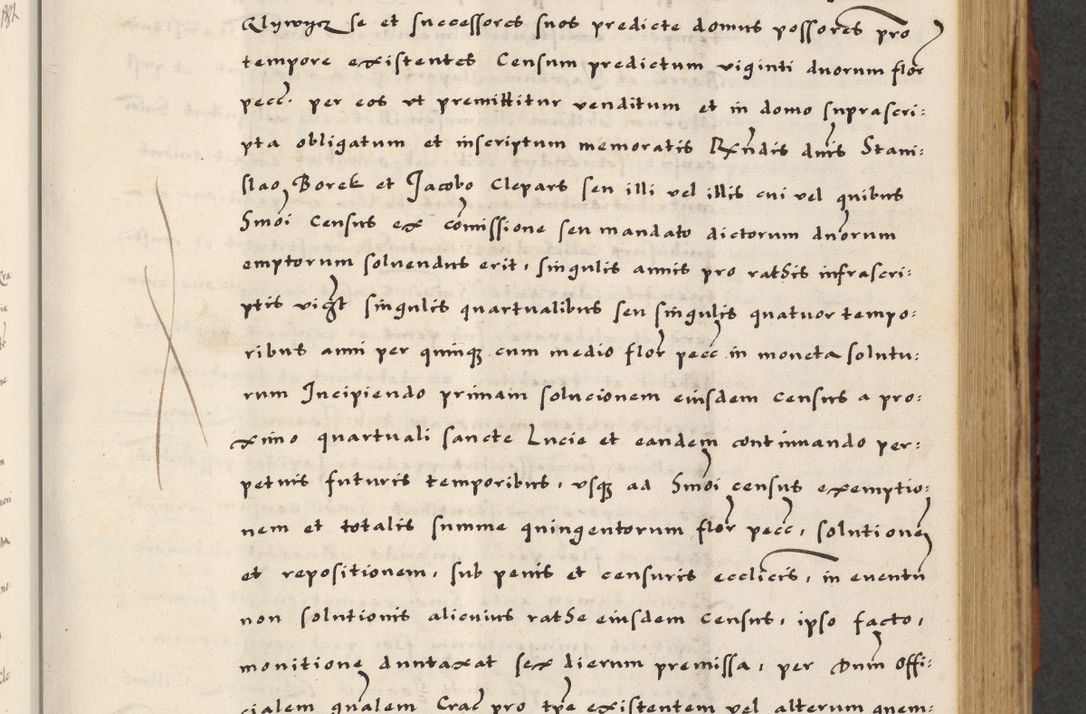 se et successores suos predicte domus possores pro
tempore existentes Censum predictum viginti duorum flor
pecc. per eos vt premittitur venditum et in domo suprascri:
pta obligatum et inscriptum memoratis Rxndis dnis Stani:
slao Borek et Jacobo Clepars seu illi vel illis cui vel quibus
Smoi Census ex comissione seu mandato dictorum duorum
emptorum soluendus erit, singulis annis pro rathis infrascri:
ptis vigt singulis quartualibus seu singulis quatuor tempo:
ribus anni per quinq cum medio flor pecc in moneta solutu:
rum Incipiendo primam solucionem eiusdem census a pro:
ximo quartuali sancte Lucie et eandem continuando per:
petuis futuris temporibus, vsq ad Smoi census exemptio:
nem et totalis summe quingentorum flor pecc, solutionem
et repositionem, sub penis et censuris ecclicis, in euentu
non solutionis alicuius rathe eiusdem census, ipso facto,
monitione duntaxat sex dierum premissa, per Dnm Offi:
cialem gnalem Crac pro tpe existentem vel alterum quem: